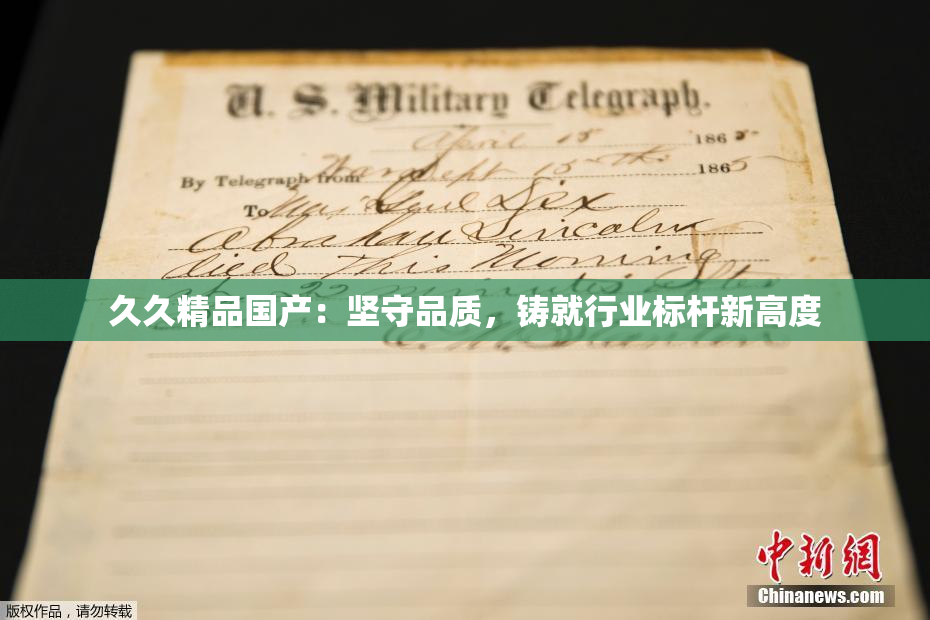 U. S. Military Telegraph.
April 15 1865
By Telegraph from War Dept 15th 1865
To Maj Genl Dix
Abraham Lincoln
died This Morning
22 minutes after
久久精品国产：坚守品质，铸就行业标杆新高度
E. M. Stanton
中新网
Chinanews.com
版权作品，请勿转载